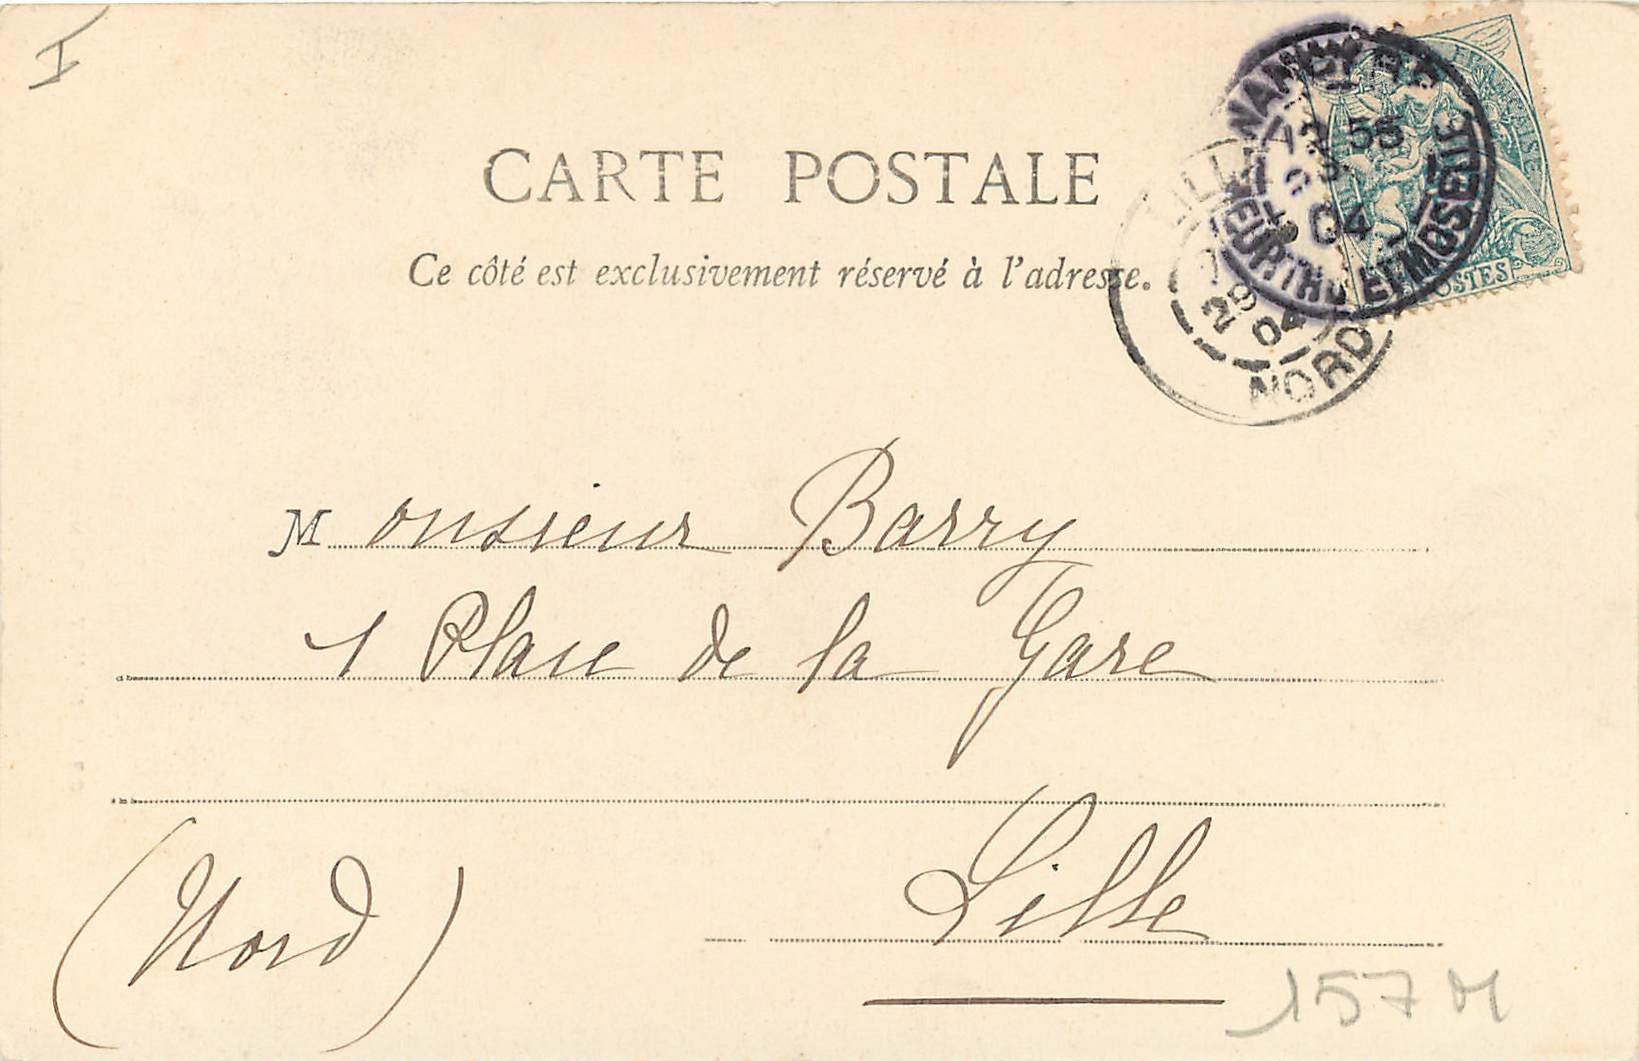 I
CARTE POSTALE
Ce côté est exclusivement réservé à l'adresse.
NANCY
55
04
MEURTHE ET MOSELLE
LILLE
29
04
NORD
POSTES
Monsieur Barry
1 Place de la Gare
Lille
(Nord)
157 M